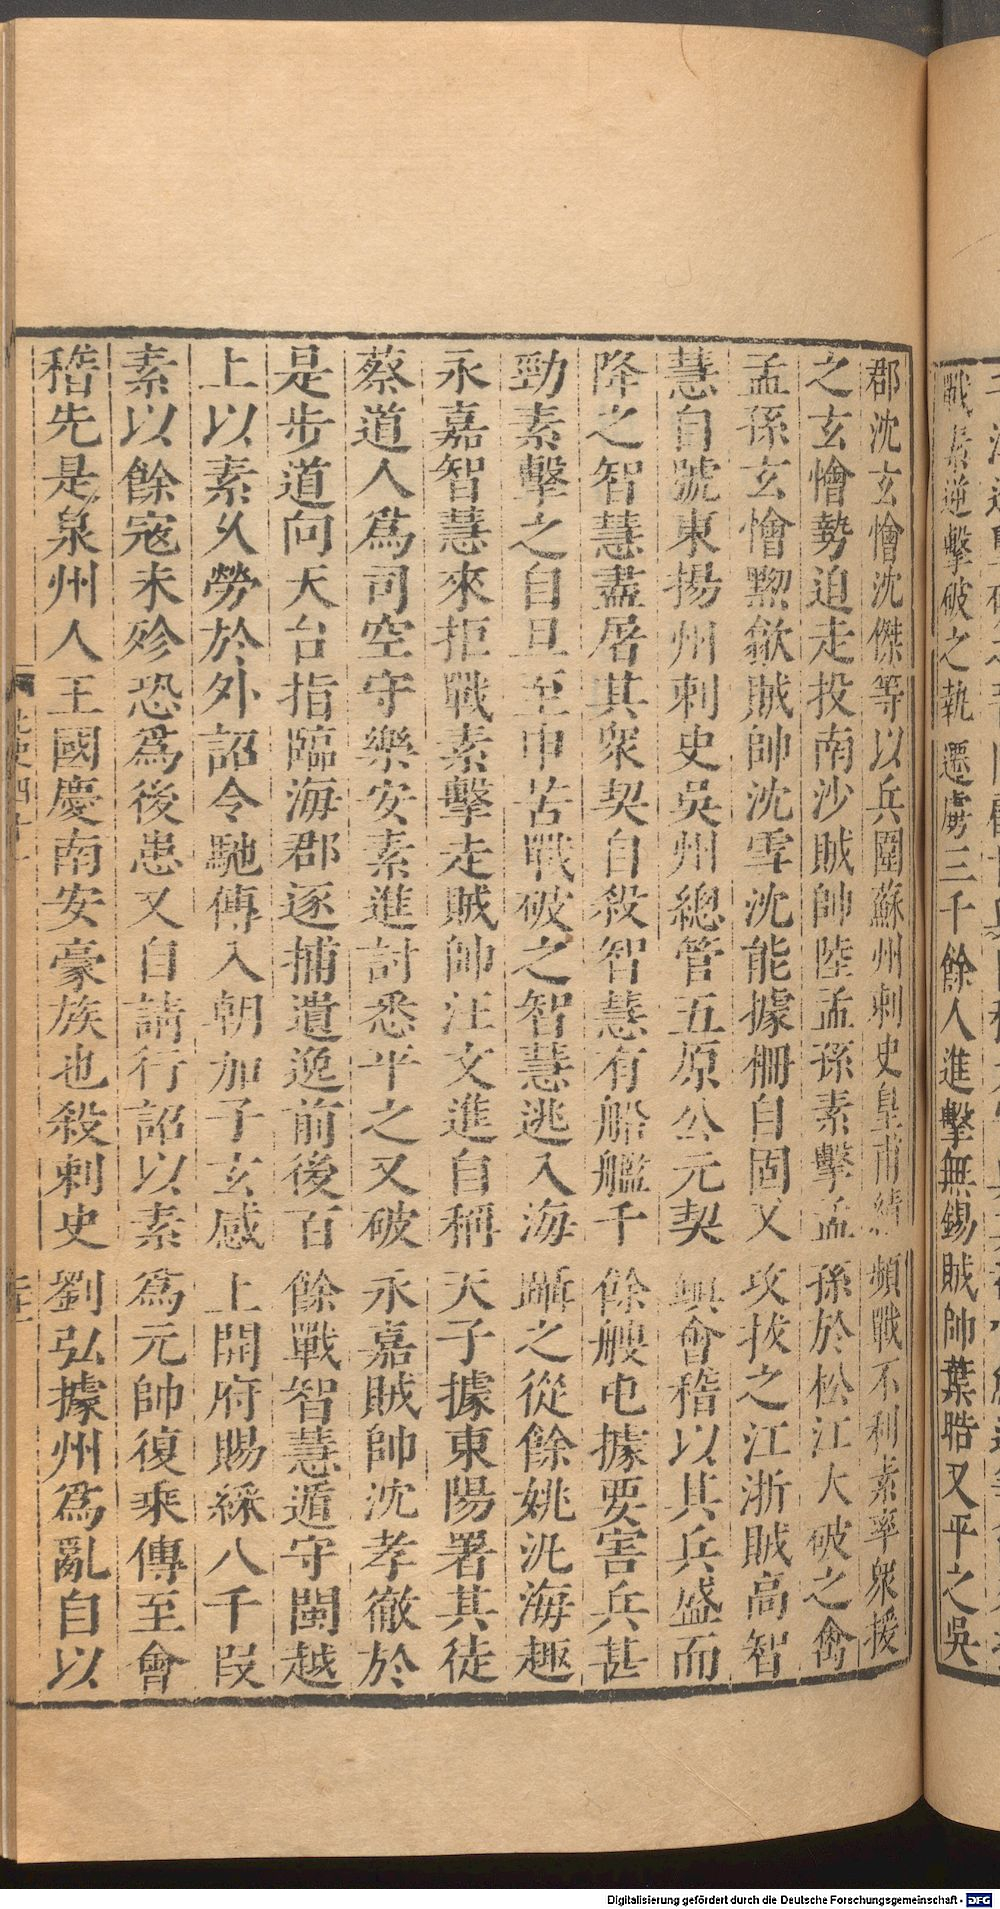 戰素逆擊破之執遷虜三千餘人進擊無錫賊帥葉晧又平之吳
郡沈玄懀沈傑等以兵圍蘇州刺史皇甫績頻戰不利素率衆援
之玄懀勢迫走投南沙賊帥陸孟孫素擊孟孫於松江大破之禽
孟孫玄懀黟歙賊帥沈雪沈能據柵自固又攻拔之江浙賊高智
慧自號東揚州刺史吳州總管五原公元契鎮會稽以其兵盛而
降之智慧盡屠其衆契自殺智慧有船艦千餘艘屯據要害兵甚
勁素擊之自旦至申苦戰破之智慧逃入海躡之從餘姚汎海趣
永嘉智慧來拒戰素擊走賊帥汪文進自稱天子據東陽署其徒
蔡道人爲司空守樂安素進討悉平之又破永嘉賊帥沈孝徹於
是步道向天台指臨海郡逐捕遺逸前後百餘戰智慧遁守閩越
上以素久勞於外詔令馳傳入朝加子玄感上開府賜綵八千段
素以餘寇未殄恐爲後患又自請行詔以素爲元帥復乘傳至會
稽先是泉州人王國慶南安豪族也殺刺史劉弘據州爲亂自以
Digitalisierung gefördert durch die Deutsche Forschungsgemeinschaft - DFG